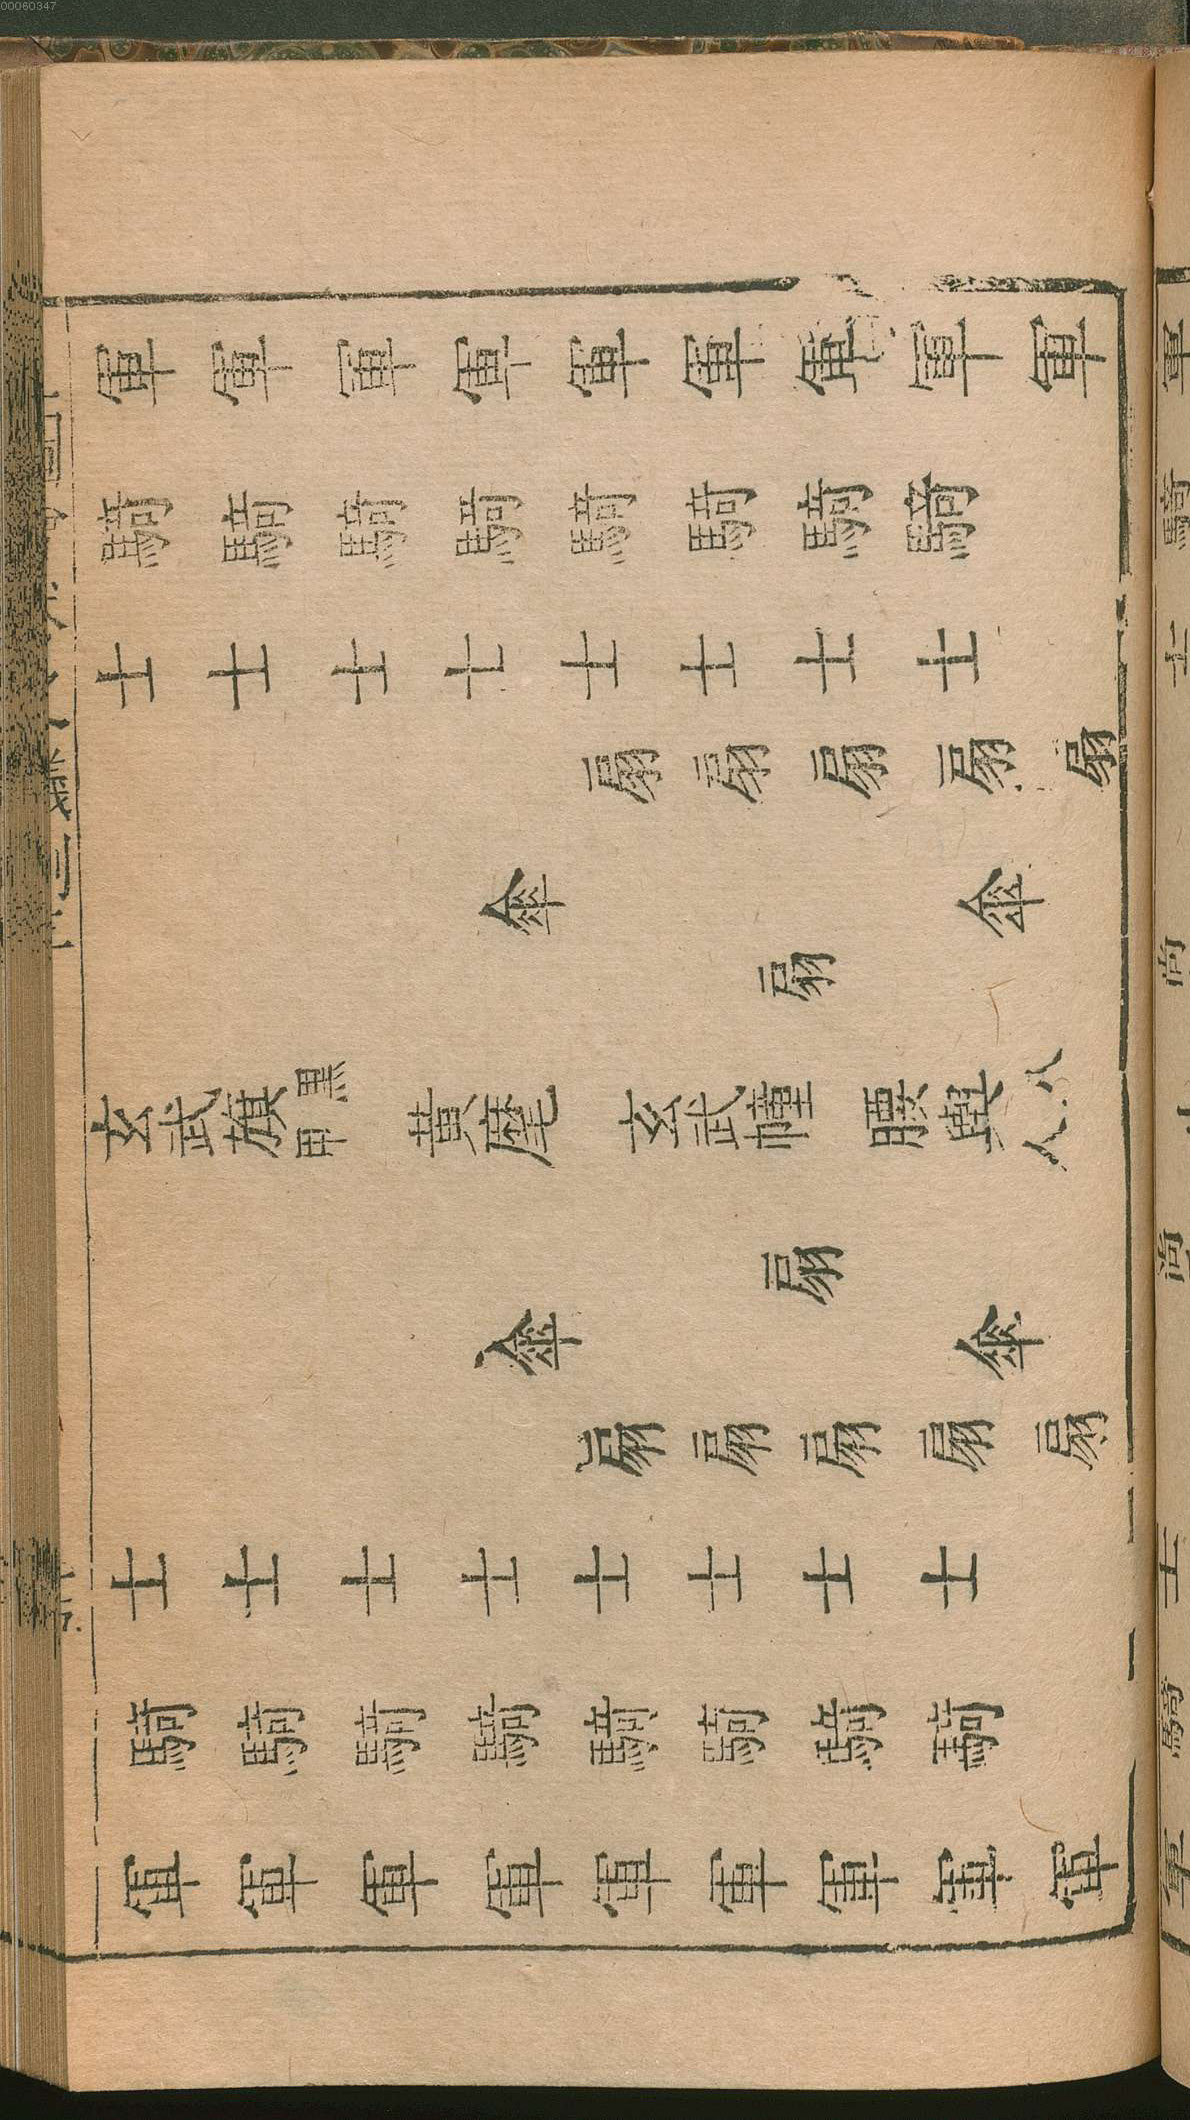 00060347
軍軍軍軍軍軍軍軍軍
騎騎騎騎騎騎騎騎
士士士士士士士士
扇扇扇扇扇
傘傘
扇
玄武旗黑甲 黃麾 玄武幢 腰輿八人
扇
傘傘
扇扇扇扇扇
士士士士士士士士
騎騎騎騎騎騎騎騎
軍軍軍軍軍軍軍軍軍